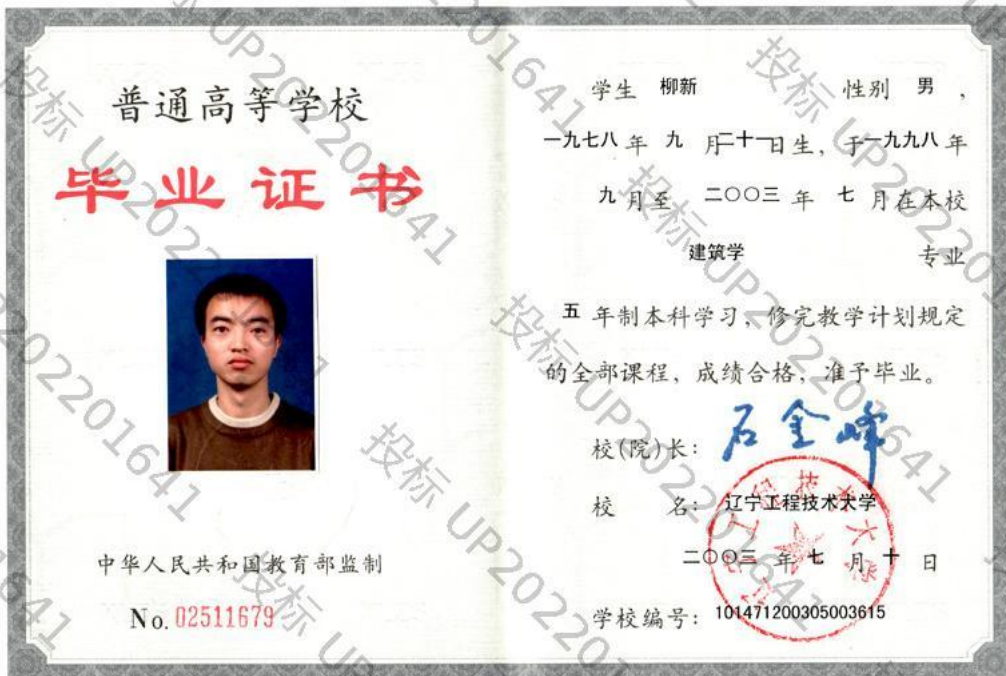 普通高等学校
毕业证书
中华人民共和国教育部监制
No. 02511679
学生 柳新 性别 男，
一九七八年 九 月二十一日生，于一九九八年
九月至 二〇〇三 年 七 月在本校
建筑学 专业
五 年制本科学习，修完教学计划规定
的全部课程，成绩合格，准予毕业。
校(院)长：石金峰
校 名：辽宁工程技术大学
二〇〇三 年 七 月 十 日
学校编号：101471200305003615
投标 UP202201641